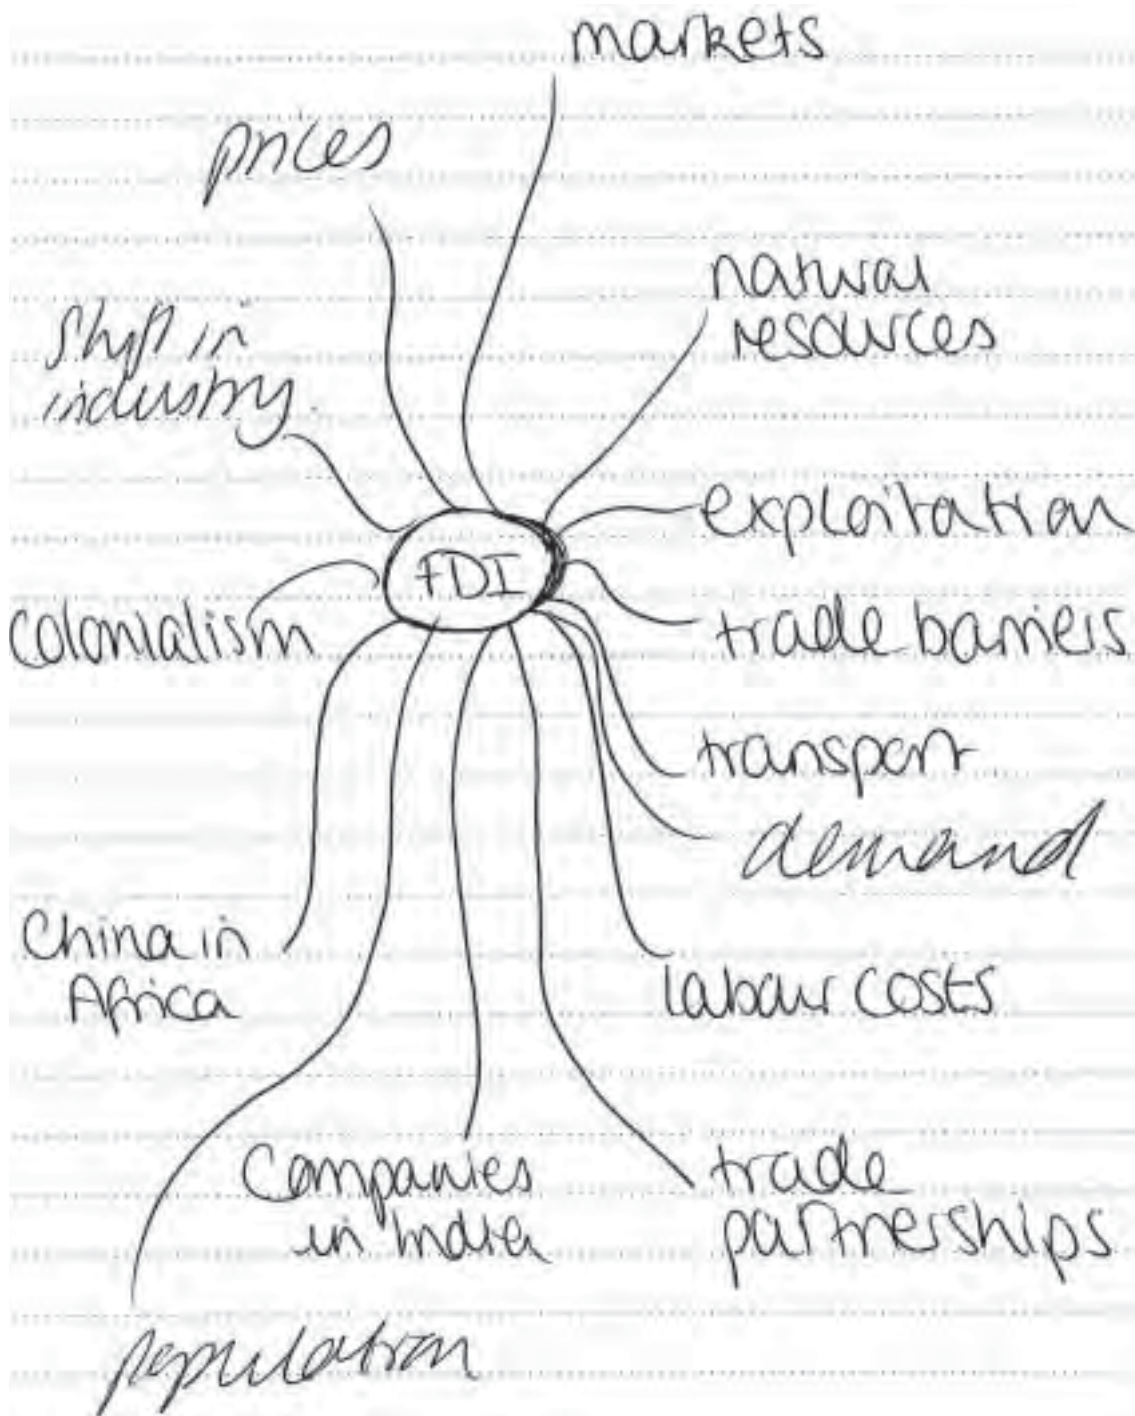 markets
prices
natural
resources
shift in
industry.
exploitation
FDI
colonialism
trade barriers
transport
demand
China in
Africa
labour costs
Companies
in India
trade
partnerships
population